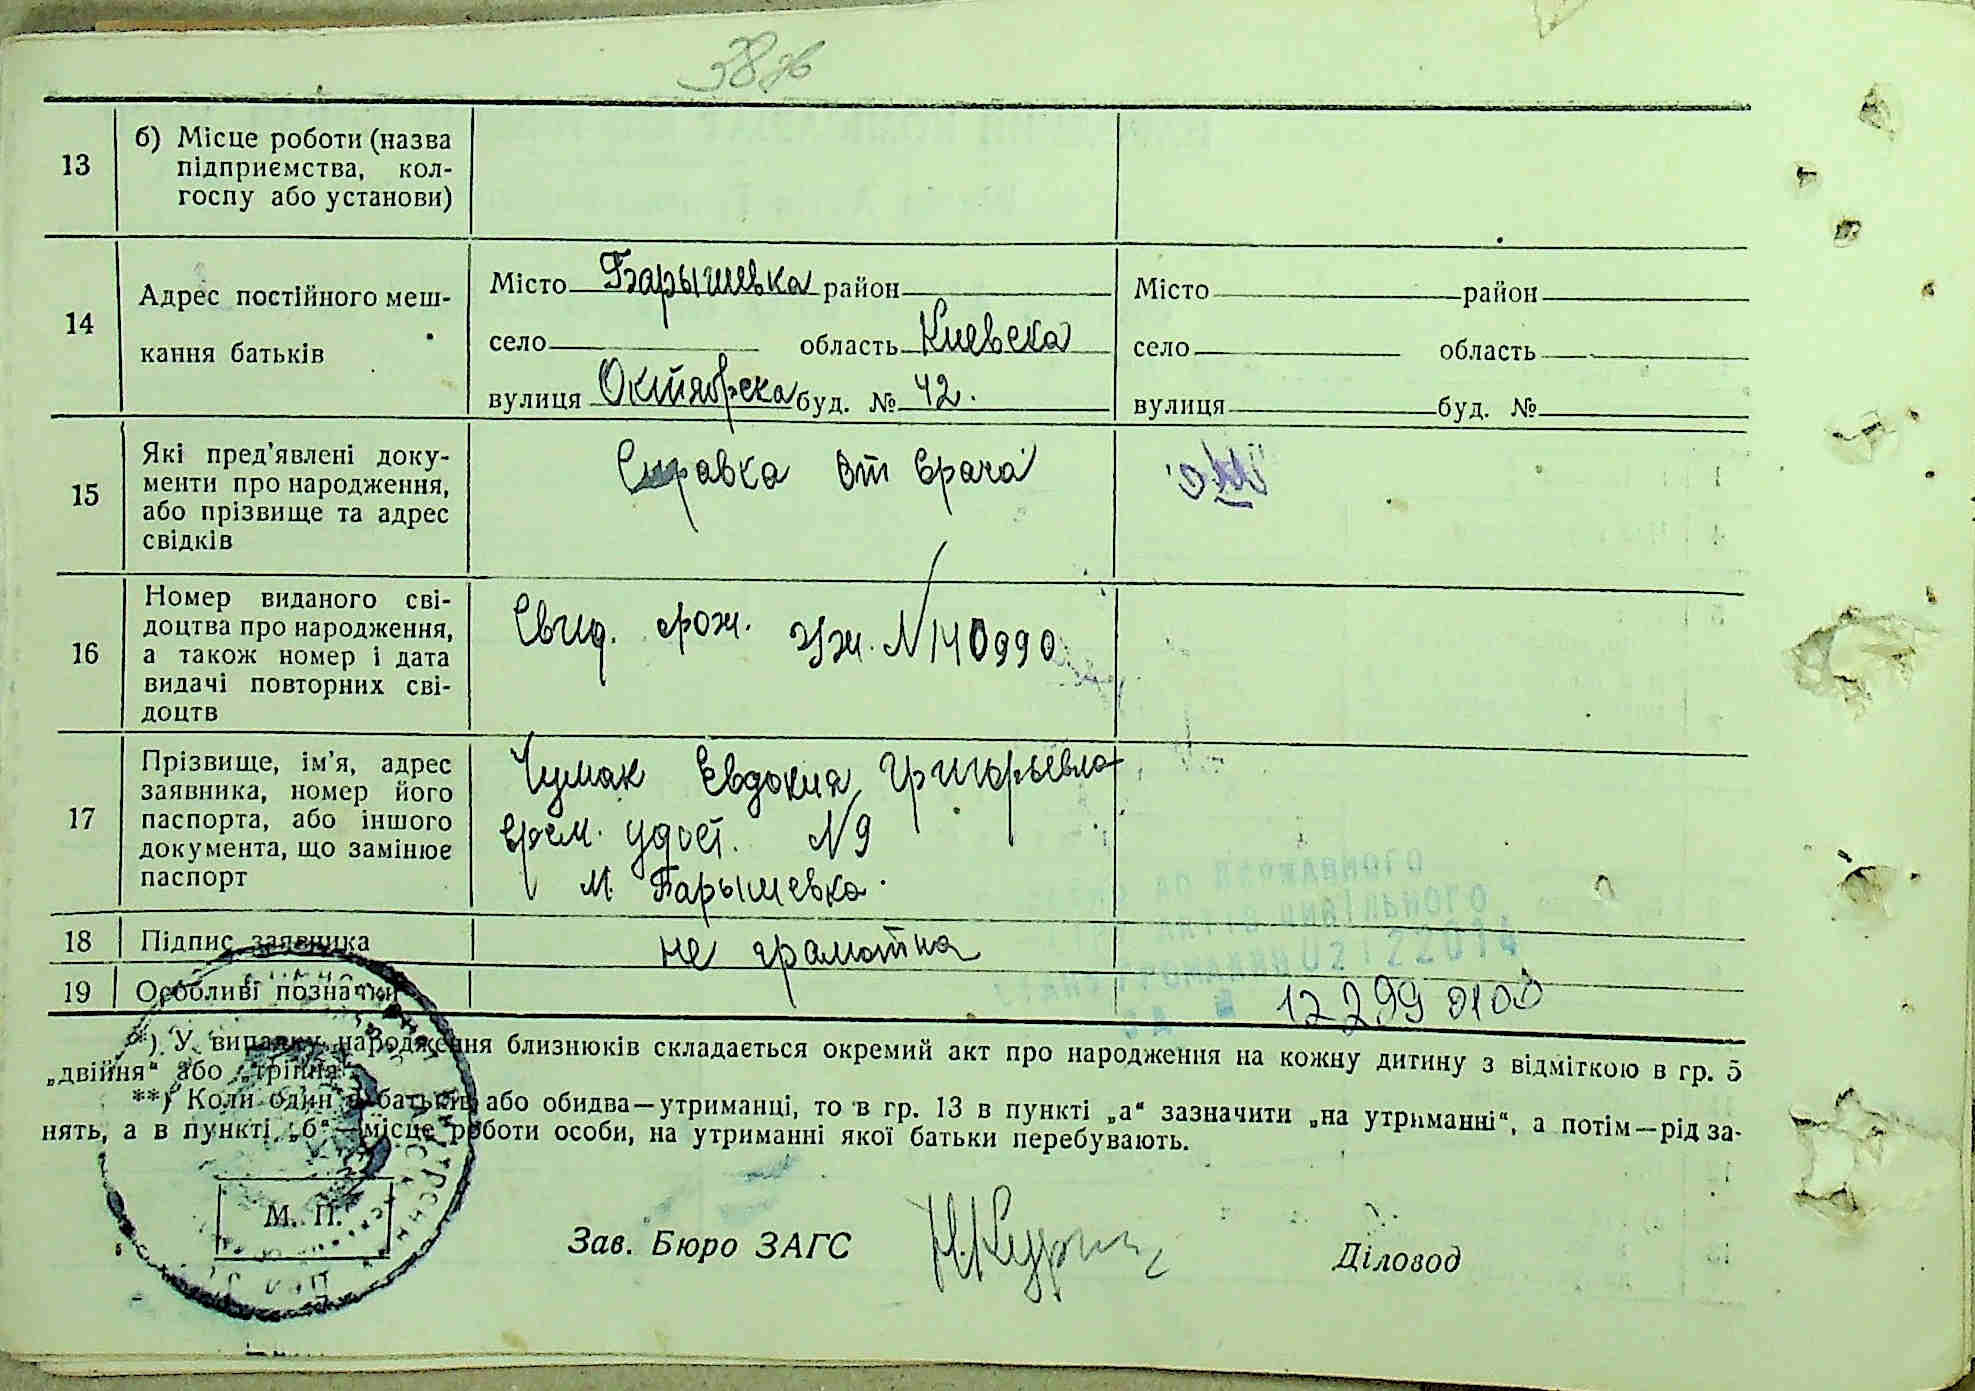 38 зв
13
б) Місце роботи (назва
підприємства, кол-
госпу або установи)
14
Адрес постійного меш-
кання батьків
Місто Барышевка район
село область Киевска
вулиця Октябрска буд. № 42.
Місто район
село область
вулиця буд. №
15
Які пред'явлені доку-
менти про народження,
або прізвище та адрес
свідків
Справка от врача
16
Номер виданого сві-
доцтва про народження,
а також номер і дата
видачі повторних сві-
доцтв
Свид. рож. № 140990
17
Прізвище, ім'я, адрес
заявника, номер його
паспорта, або іншого
документа, що замінює
паспорт
Чумак Евдокия Григорьевна
врем. удост. №9
м. Барышевка.
18
Підпис заявника
не грамотна
19
Особливі позначки
12 2 99 0100
*) У випадку народження близнюків складається окремий акт про народження на кожну дитину з відміткою в гр. 5
„двійня“ або „трійня“.
**) Коли один з батьків або обидва—утриманці, то в гр. 13 в пункті „а“ зазначити „на утриманні“, а потім—рід за-
нять, а в пункті „б“—місце роботи особи, на утриманні якої батьки перебувають.
М. П.
Зав. Бюро ЗАГС
Діловод